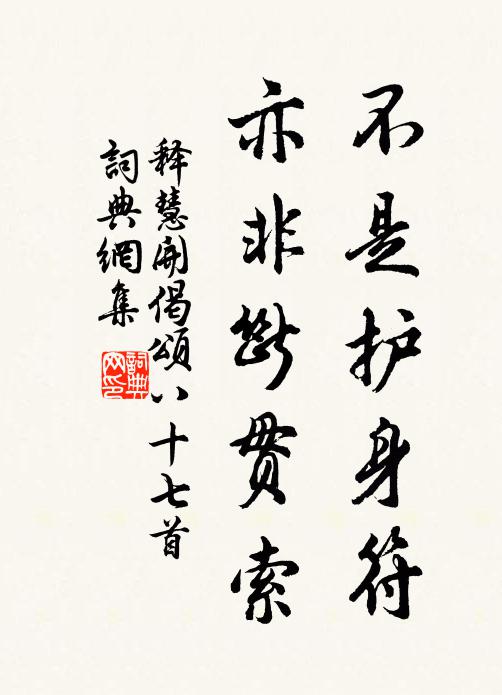 不是护身符
亦非断贯索
释慧开偈颂八十七首
詞典網集
詞典网印